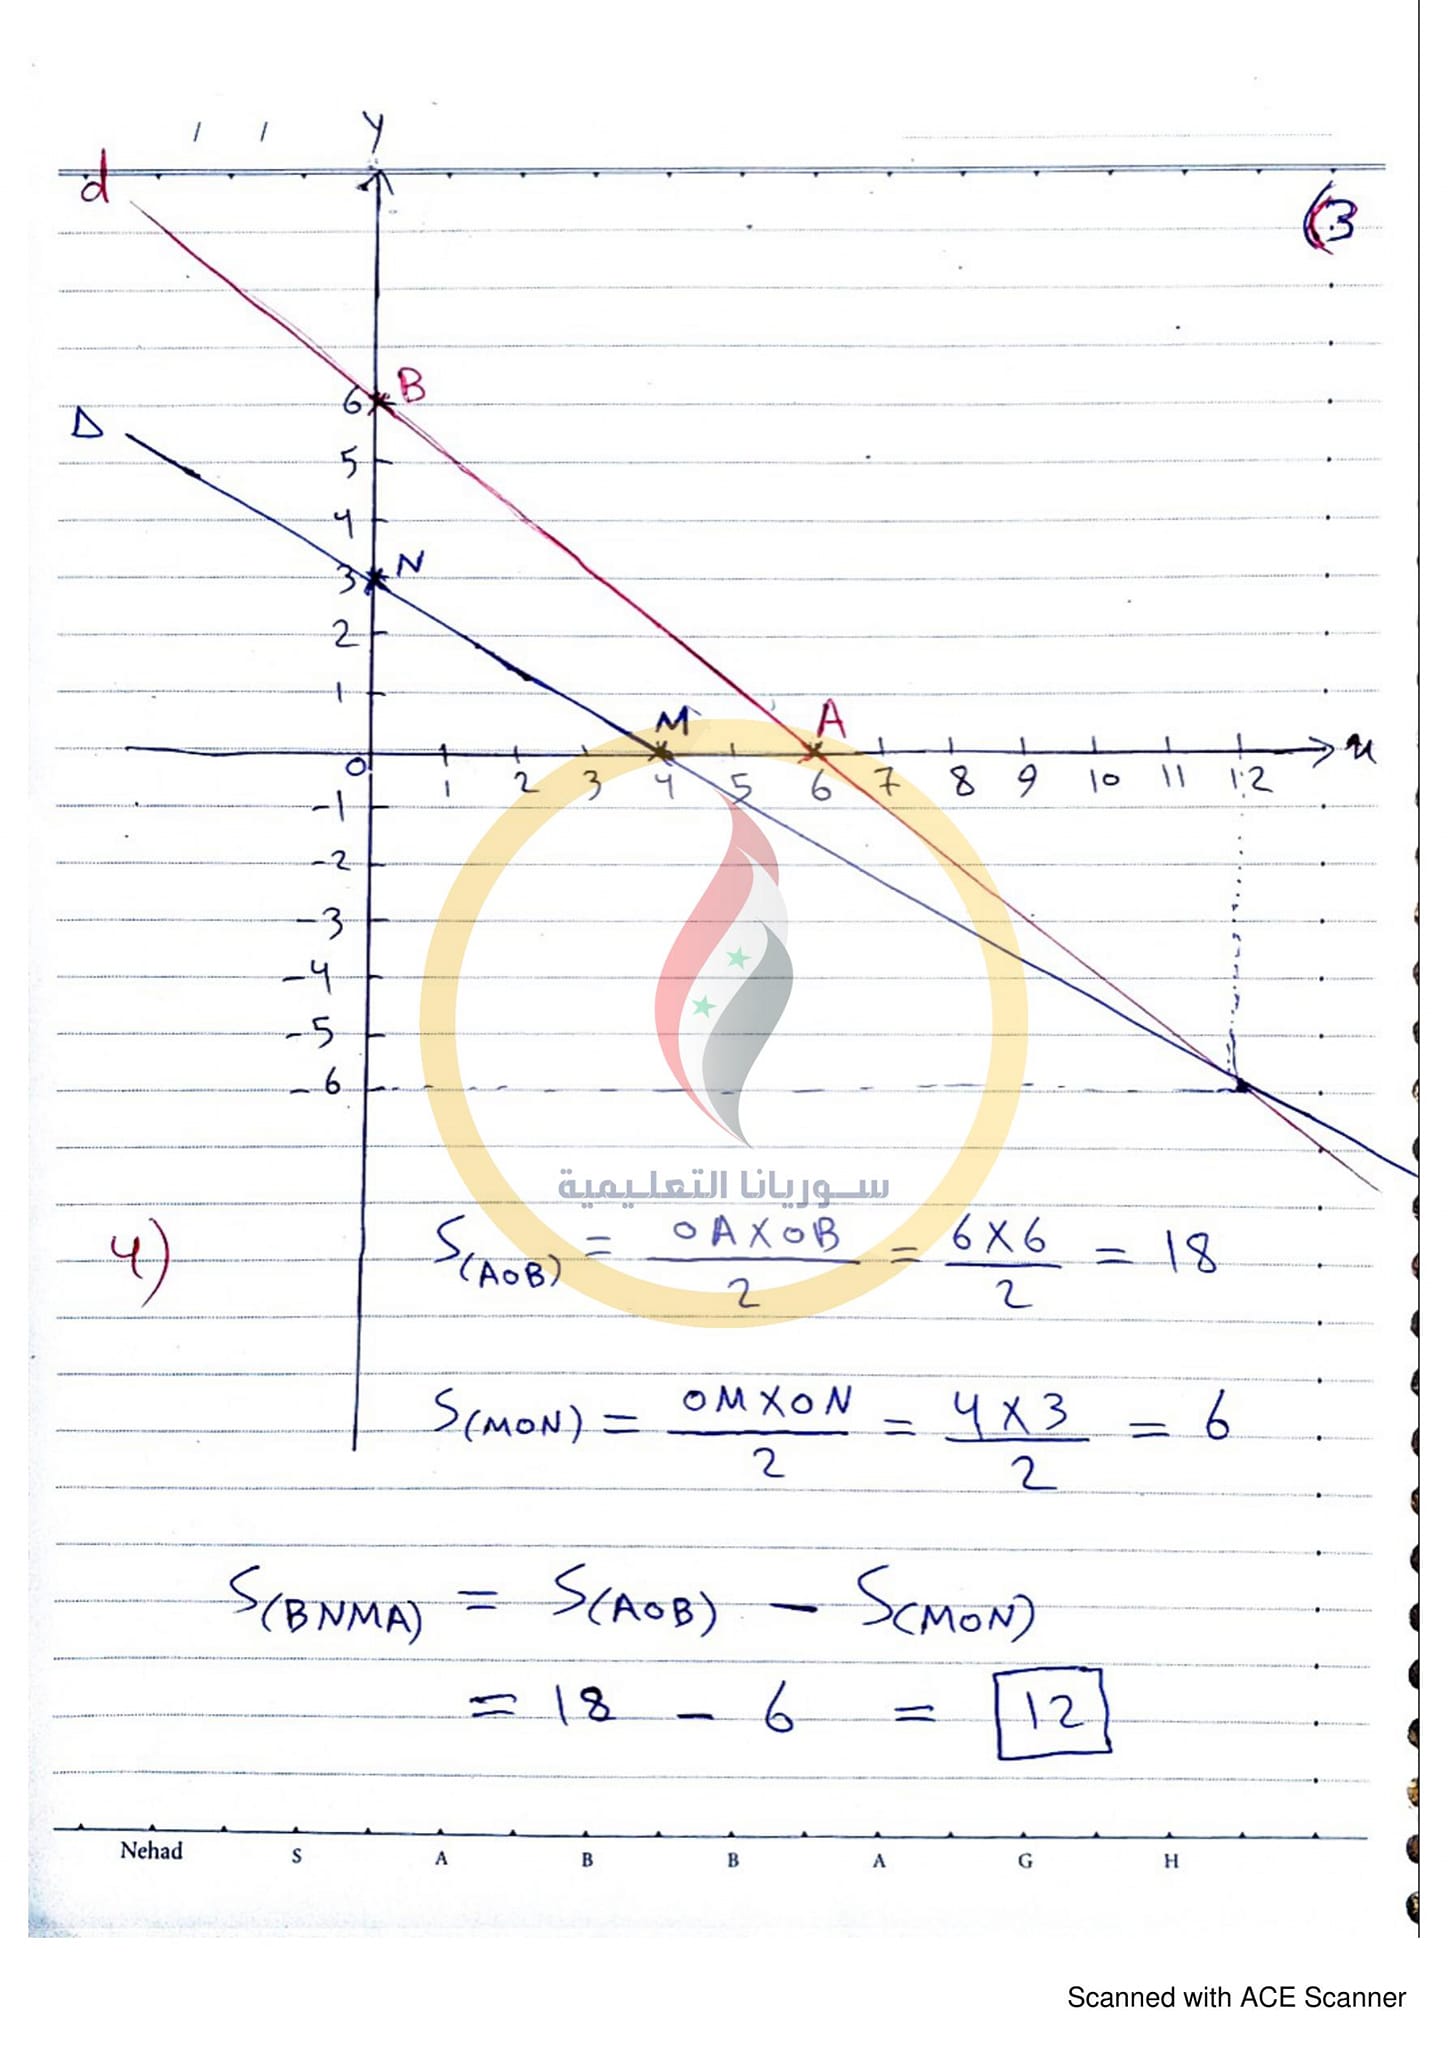 Y
d
(3
B
6
Δ
5
4
N
3
2
1
M
A
x
0
1 2 3 4 5 6 7 8 9 10 11 12
-1
-2
-3
-4
-5
-6
سوريانا التعليمية
4) S(AOB) = OA×OB/2 = 6×6/2 = 18
S(MON) = OM×ON/2 = 4×3/2 = 6
S(BNMA) = S(AOB) - S(MON)
= 18 - 6 = 12
Nehad S A B B A G H
Scanned with ACE Scanner